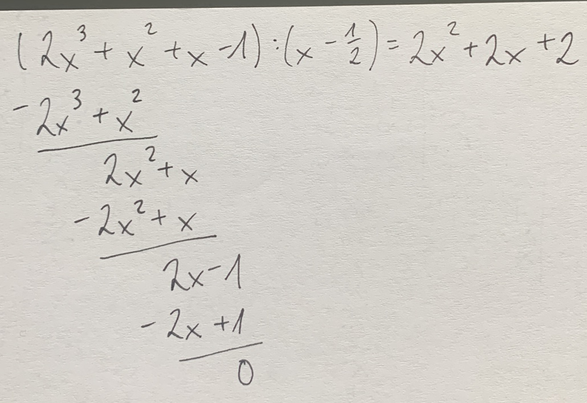 (2x³ + x² + x - 1) : (x - 1/2) = 2x² + 2x + 2
- 2x³ + x²
2x² + x
- 2x² + x
2x - 1
- 2x + 1
0